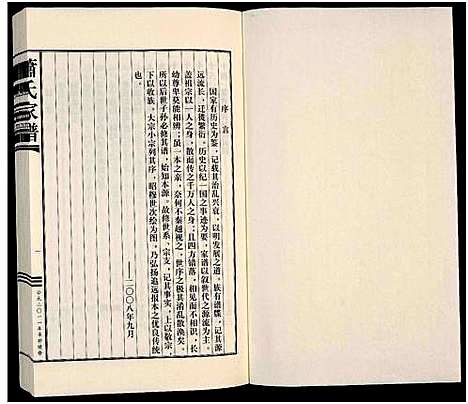 序言
国家有历史为鉴，记载其治乱兴衰，以明发展之道。族有谱牒，记其源
远流长，迁徙繁衍。历史以纪一国之事迹为要，家谱以叙世代之源流为主。
盖祖宗以一人之身，散而传之千万人之身；且四方错落，相见而不相识，长
幼尊卑莫能相辨；虽一本之亲，奈何不秦越视之，世序之极其淆乱散涣矣。
所以后世子孙必修其谱，始知本源。故修世系，宗支，记其事实，上以敬宗，
下以收族。大宗小宗列其序，昭穆世次绘为图，乃弘扬追远报本之优良传统
也。
——二〇〇八年九月
萧氏家谱
一